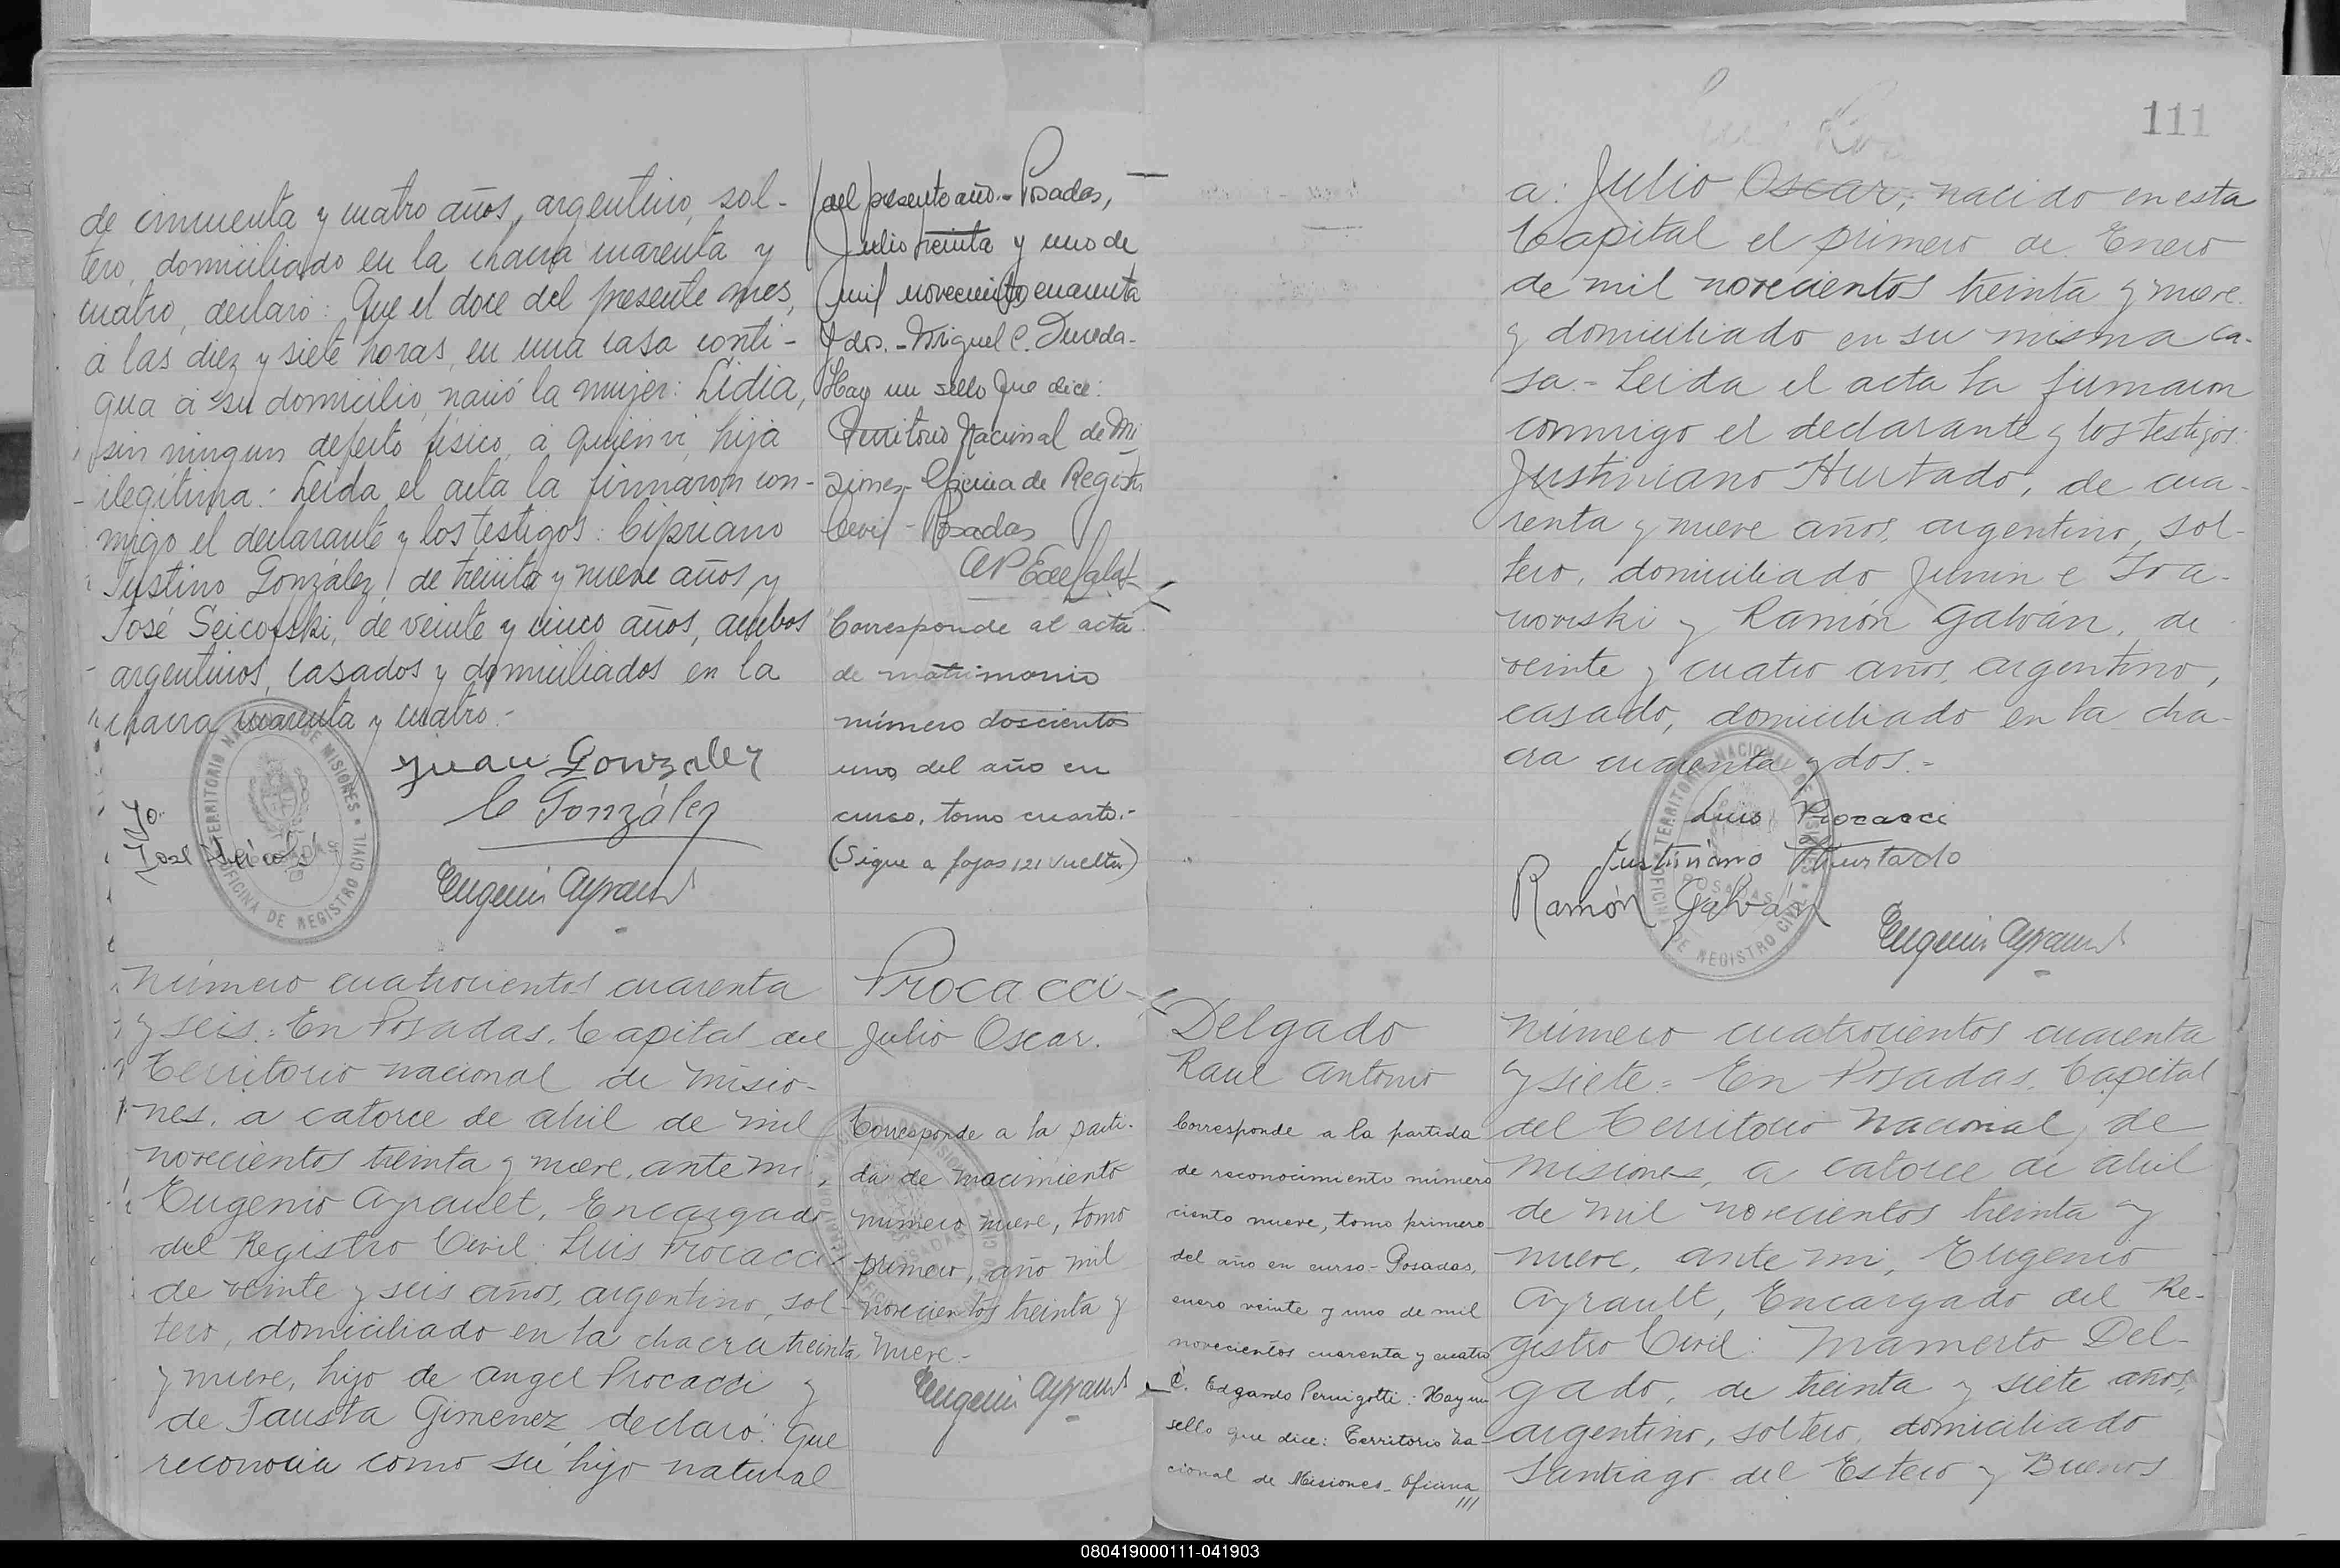 de cincuenta y cuatro años, argentino, sol-
tero, domiciliado en la chacra cuarenta y
cuatro, declaró: Que el doce del presente mes,
á las diez y siete horas, en una casa conti-
gua á su domicilio, nació la mujer: Lidia,
sin ningun defecto físico, á quien ví, hija
ilegítima.- Leída el acta la firmaron con-
migo el declarante y los testigos: Cipriano
Justino González, de treinta y nueve años y
José Seicofski, de veinte y cinco años, ambos
argentinos, casados y domiciliados en la
chacra cuarenta y cuatro.-
Juan Gonzalez
C González
Yo.
José
Eugenio Ayrault
TERRITORIO NACIONAL DE MISIONES
POSADAS
OFICINA DE REGISTRO CIVIL
del presente año.- Posadas,
Julio treinta y uno de
mil novecientos cuarenta
y dos.- Miguel C.
Hay un sello que dice:
Territorio Nacional de Mi
siones- Oficina de Registro
Civil - Posadas
Corresponde al acta
de matrimonio
número doscientos
uno del año en
curso, tomo cuarto.-
(Sigue a fojas 121 vuelta)
Número cuatrocientos cuarenta
y seis.= En Posadas, Capital del
Territorio Nacional de Misio-
nes, a catorce de abril de mil
novecientos treinta y nueve, ante mi,
Eugenio Ayrault, Encargado
del Registro Civil: Luis Procacci
de veinte y seis años, argentino, sol-
tero, domiciliado en la chacra treinta
y nueve, hijo de Angel Procacci y
de Fausta Gimenez, declaró: Que
reconocia como su hijo natural
Procacci
Julio Oscar.
Corresponde a la parti-
da de nacimiento
número nueve, tomo
primero, año mil
novecientos treinta y
nueve.-
Eugenio Ayrault
111
a: Julio Oscar, nacido en esta
Capital el primero de Enero
de mil novecientos treinta y nueve
y domiciliado en su misma ca-
sa.- Leida el acta la firmaron
conmigo el declarante y los testigos:
Justiniano Hurtado, de cua-
renta y nueve años, argentino, sol-
tero, domiciliado Junin e Ira-
noviski y Ramón Galván, de
veinte y cuatro años, argentino,
casado, domiciliado en la cha-
cra cuarenta y dos.-
Luis Procacci
Justiniano Hurtado
Ramón Galván
Eugenio Ayrault
TERRITORIO NACIONAL DE MISIONES
POSADAS
OFICINA DE REGISTRO CIVIL
Delgado
Raul Antonio
Corresponde a la partida
de reconocimiento número
ciento nueve, tomo primero
del año en curso- Posadas,
enero veinte y uno de mil
novecientos cuarenta y cuatro
C. Edgardo Pernigotti: Hay un
sello que dice: Territorio Na-
cional de Misiones- Oficina
///
Número cuatrocientos cuarenta
y siete= En Posadas, Capital
del Territorio Nacional de
Misiones, a catorce de abril
de mil novecientos treinta y
nueve, ante mi, Eugenio
Ayrault, Encargado del Re-
gistro Civil: Mamerto Del-
gado, de treinta y siete años,
argentino, soltero, domiciliado
Santiago del Estero y Buenos
080419000111-041903